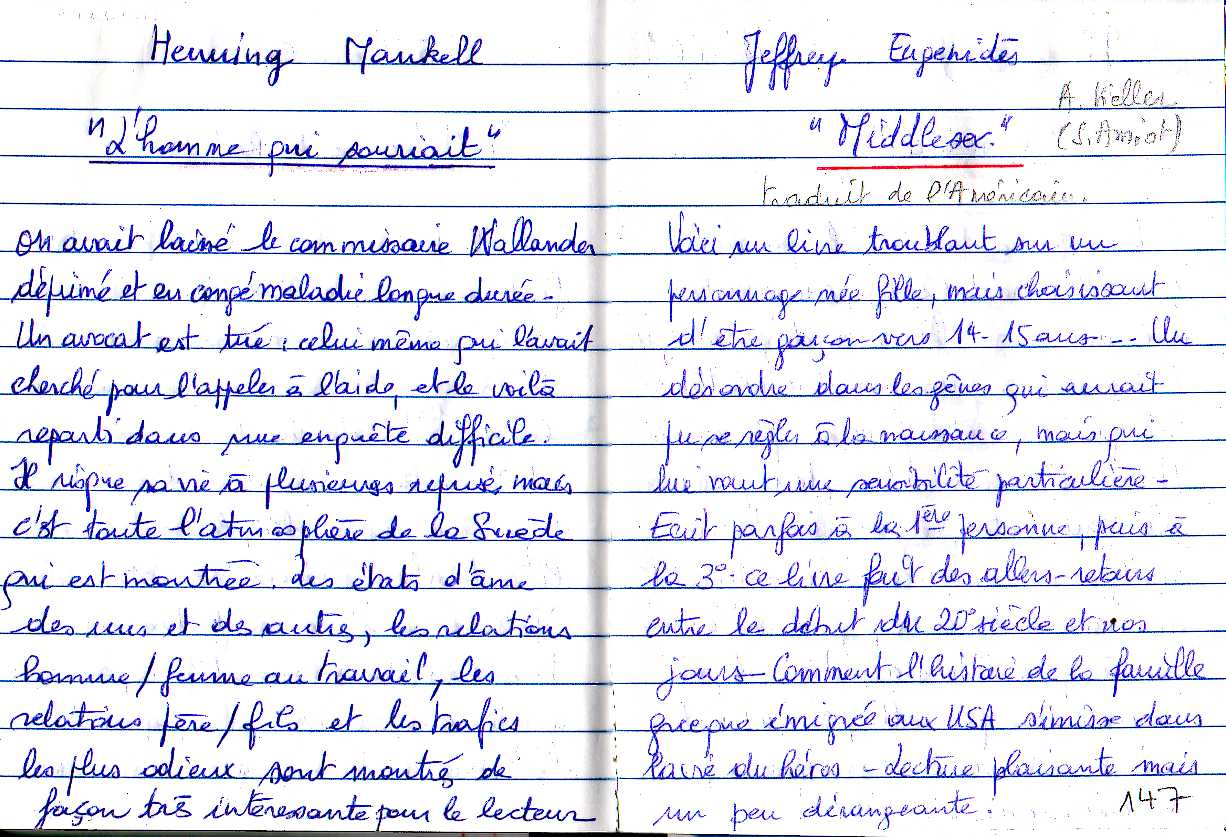 Henning Mankell
"L'homme qui souriait"
On avait laissé le commissaire Wallander
déprimé et en congé maladie longue durée -
Un avocat est tué : celui même qui l'avait
cherché pour l'appeler à l'aide, et le voilà
reparti dans une enquête difficile.
Il risque sa vie à plusieurs reprises, mais
c'est toute l'atmosphère de la Suède
qui est montrée. des états d'âme
des uns et des autres, les relations
homme/femme au travail, les
relations père/fils et les trafics
les plus odieux sont montrés de
façon très intéressante pour le lecteur
Jeffrey Eugenidès
A. Keller
"Middlesex."
(S. Amiot)
traduit de l'Américain.
Voici un livre troublant sur un
personnage née fille, mais choisissant
d'être garçon vers 14-15 ans -- Un
désordre dans les gènes qui aurait
pu se régler à la naissance, mais qui
lui vaut une sensibilité particulière -
Ecrit parfois à la 1ère personne, puis à
la 3° - ce livre fait des allers-retours
entre le début du 20° siècle et nos
jours - Comment l'histoire de la famille
grecque émigrée aux USA s'imisse dans
la vie du héros - Lecture plaisante mais
un peu dérangeante.
147